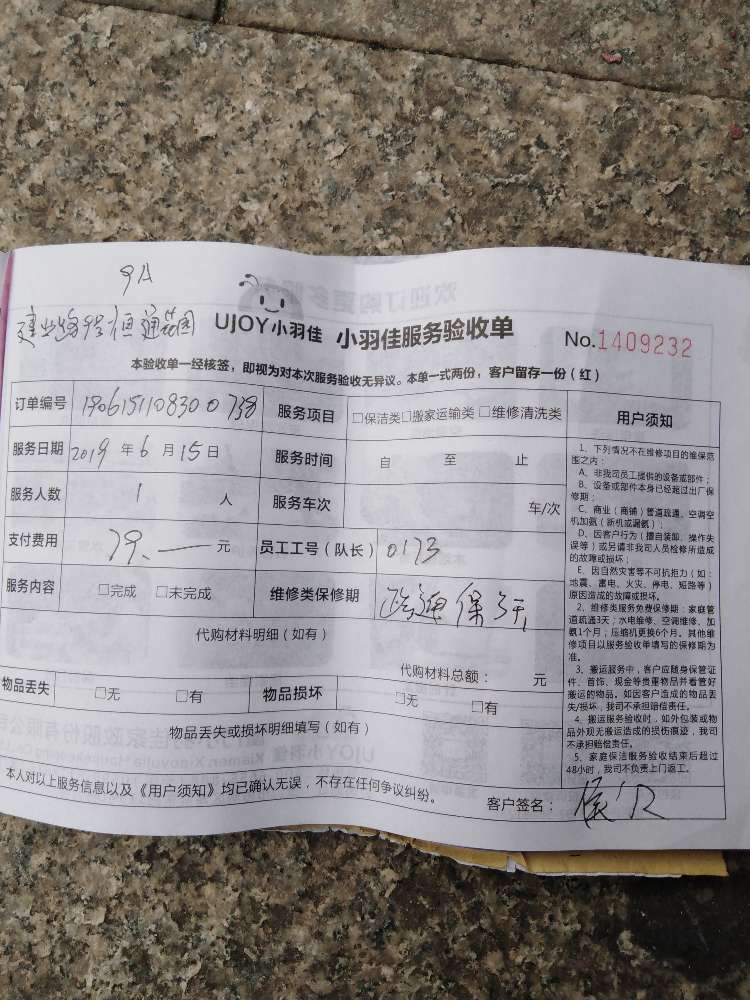 9A
恒通花园
UJOY小羽佳 小羽佳服务验收单 No.1409232
本验收单一经核签，即视为对本次服务验收无异议。本单一式两份，客户留存一份（红）
订单编号 190615110830 0738 服务项目 □保洁类□搬家运输类 □维修清洗类
服务日期 2019 年 6 月 15 日 服务时间 自 至 止
服务人数 1 人 服务车次 车/次
支付费用 79.— 元 员工工号（队长） 0173
服务内容 □完成 □未完成 维修类保修期 疏通保3天
代购材料明细（如有）
代购材料总额： 元
物品丢失 □无 □有 物品损坏 □无 □有
物品丢失或损坏明细填写（如有）
本人对以上服务信息以及《用户须知》均已确认无误，不存在任何争议纠纷。 客户签名：
用户须知
1、下列情况不在维修项目的维保范
围之内：
A、非我司员工提供的设备或部件；
B、设备或部件本身已经超过出厂保
修期；
C、商业（商铺）管道疏通、空调空
机加氨（新机或漏氨）；
D、因客户行为（擅自装卸、操作失
误等）或另请非我司人员检修所造成
的故障或损坏；
E、因自然灾害等不可抗拒力（如：
地震、雷电、火灾、停电、短路等）
原因造成的故障或损坏。
2、维修类服务免费保修期：家庭管
道疏通3天；水电维修、空调维修、加
氨1个月；压缩机更换6个月。其他维
修项目以服务验收单填写的保修期为
准。
3、搬运服务中，客户应随身保管证
件、首饰、现金等贵重物品并看管好
搬运的物品。如因客户造成的物品丢
失/损坏，我司不承担赔偿责任。
4、搬运服务验收时，如外包装或物
品外观无搬运造成的损伤痕迹，我司
不承担赔偿责任。
5、家庭保洁服务验收结束后超过
48小时，我司不负责上门返工。